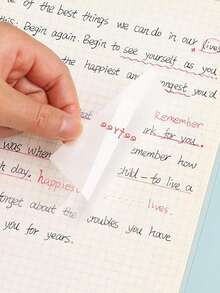 of the best things we can do in our lives
this: Begin again. Begin to see yourself as you
the happiest and strongest you'd
Remember
at party work for you.
was when remember how
h day. happiest child – to live a
lives
forget about the troubles you have
you for years.